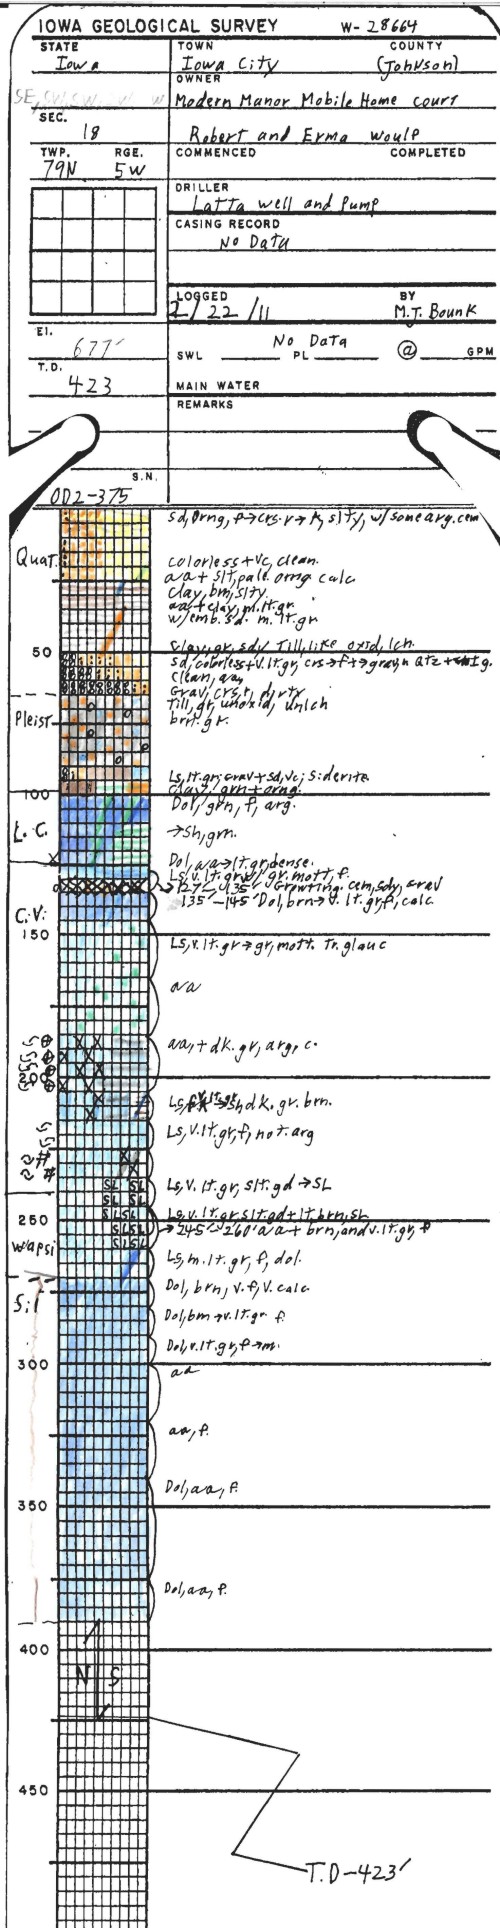 IOWA GEOLOGICAL SURVEY W- 28664
STATE TOWN COUNTY
Iowa Iowa City (Johnson)
OWNER
SE, SW, SW, SW Modern Manor Mobile Home court
SEC.
18 Robert and Erma Woulf
TWP. RGE. COMMENCED COMPLETED
79N 5W
DRILLER
Latta well and Pump
CASING RECORD
No Data
LOGGED BY
2/22/11 M.J. Bounk
El.
677' No Data
SWL PL @ GPM
T.D.
423 MAIN WATER
REMARKS
S.N.
002-375
Sd, Orng, f→crs. r→A, slty, w/some arg. cem
Quat. colorless + vc, clean.
aa + slt, pale orng calc
clay, brn, slty.
aa + clay, m. lt. gr.
w/emb. sd. m. lt. gr
Clay, gr, sdy Till, like oxid, lch.
50 sd, colorless + v. lt. gr, crs→f+→grav, n Qtz + Ig.
Clean, aa,
Grav, crs, r, dirty
Till, gr, unoxid, unlch
Pleist. brn. gr.
Ls, lt. gr; grav + sd, vc; Siderite
Clay, grn + orng.
100 Dol, grn, f, arg.
L. C. →Sh, grn.
Dol, aa→lt. gr, dense.
Ls, v. lt. gr w/ gr. mott, f.
→127'-135' Growting. cem, sdy, grav
135'-145' Dol, brn→v. lt. gr, f, calc
C.V.
150 Ls, v. lt. gr→gr, mott. Tr. glauc
aa
aa, + dk. gr, arg, c.
200
Ls, v. lt. gr→Sh dk. gr. brn.
Ls, v. lt. gr, f, not. arg
Ls, v. lt. gr, slt. gd→SL
SL SL
SL SL
SL SL Ls, v. lt. gr slt. gd + lt. brn, SL
250 SL SL →245'-260' aa + brn, and v. lt. gr, f
Wapsi SL SL
Ls, m. lt. gr, f, dol.
Sil Dol, brn, v. f, v. calc
Dol, brn→v. lt. gr f.
Dol, v. lt. gr, f→m.
300 aa
aa, f.
350 Dol, aa, f.
Dol, aa, f.
400
N S
450
T.D-423'